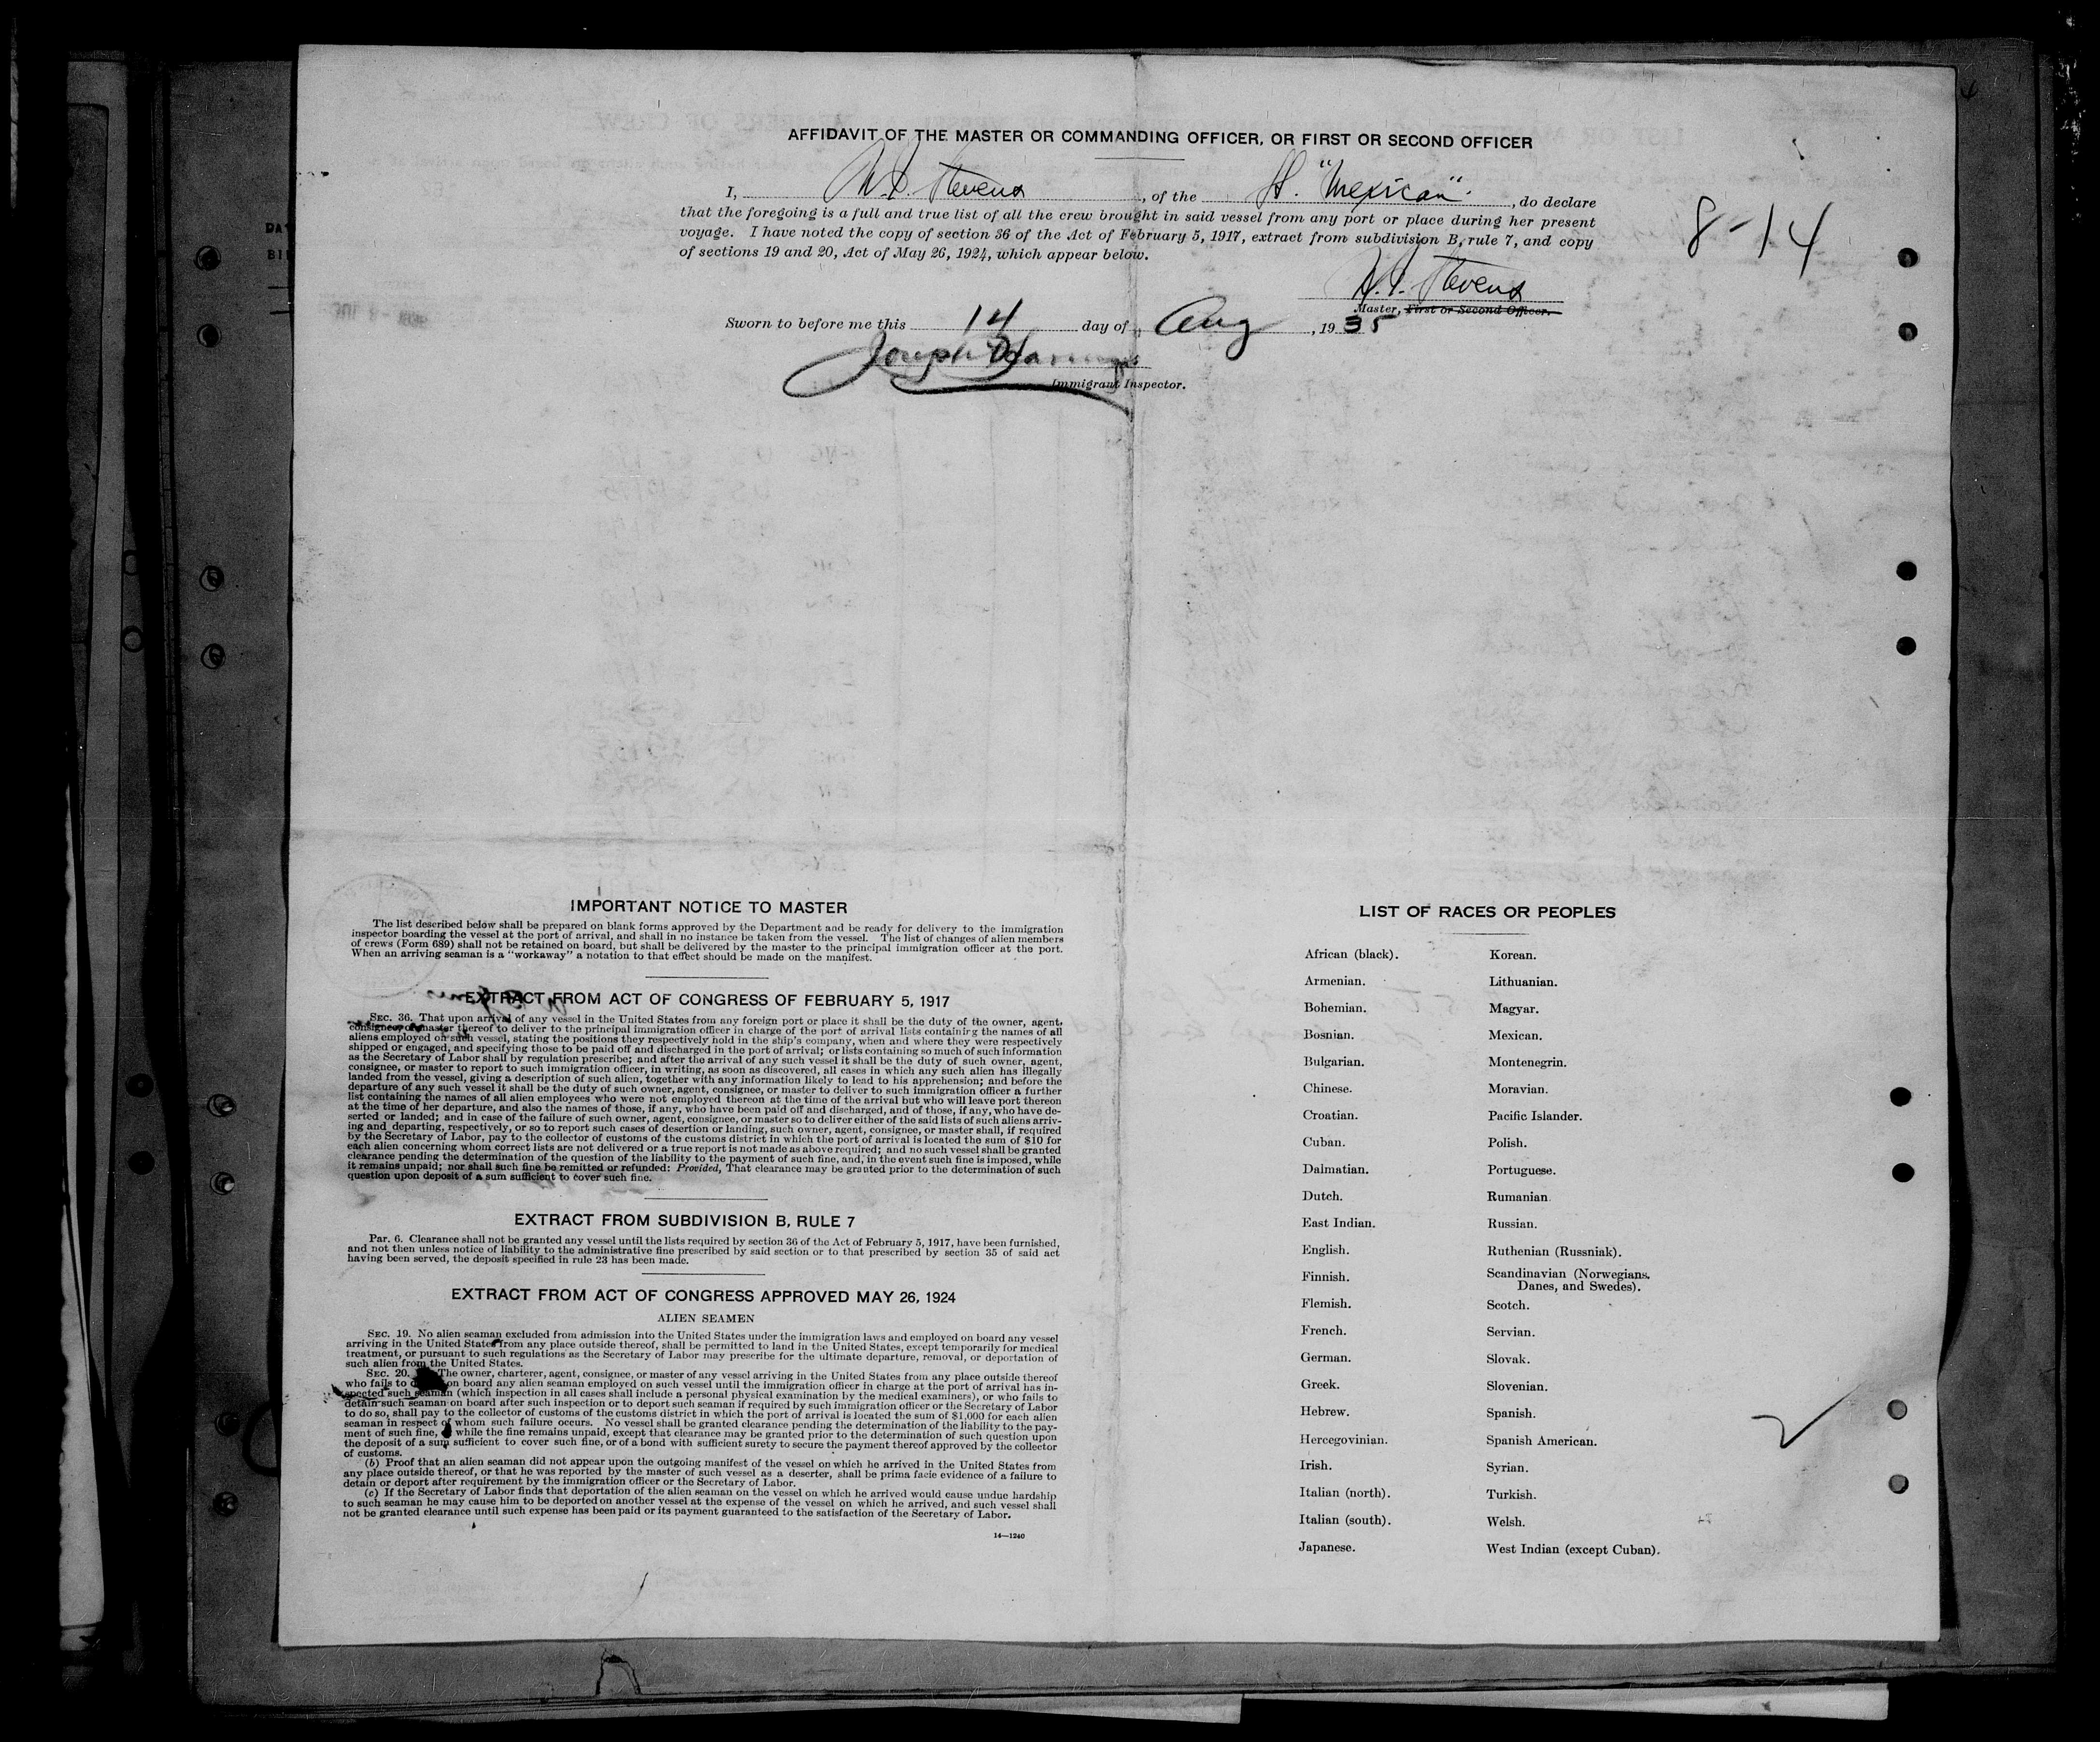 AFFIDAVIT OF THE MASTER OR COMMANDING OFFICER, OR FIRST OR SECOND OFFICER
I, Stevens, of the "Mexican", do declare
that the foregoing is a full and true list of all the crew brought in said vessel from any port or place during her present
voyage. I have noted the copy of section 36 of the Act of February 5, 1917, extract from subdivision B, rule 7, and copy
of sections 19 and 20, Act of May 26, 1924, which appear below.
8-14
Stevens
Master, First or Second Officer.
Sworn to before me this 14 day of Aug, 1935
Joseph
Immigrant Inspector.
IMPORTANT NOTICE TO MASTER
The list described below shall be prepared on blank forms approved by the Department and be ready for delivery to the immigration
inspector boarding the vessel at the port of arrival, and shall in no instance be taken from the vessel. The list of changes of alien members
of crews (Form 689) shall not be retained on board, but shall be delivered by the master to the principal immigration officer at the port.
When an arriving seaman is a "workaway" a notation to that effect should be made on the manifest.
EXTRACT FROM ACT OF CONGRESS OF FEBRUARY 5, 1917
SEC. 36. That upon arrival of any vessel in the United States from any foreign port or place it shall be the duty of the owner, agent,
consignee, or master thereof to deliver to the principal immigration officer in charge of the port of arrival lists containing the names of all
aliens employed on such vessel, stating the positions they respectively hold in the ship's company, when and where they were respectively
shipped or engaged, and specifying those to be paid off and discharged in the port of arrival; or lists containing so much of such information
as the Secretary of Labor shall by regulation prescribe; and after the arrival of any such vessel it shall be the duty of such owner, agent,
consignee, or master to report to such immigration officer, in writing, as soon as discovered, all cases in which any such alien has illegally
landed from the vessel, giving a description of such alien, together with any information likely to lead to his apprehension; and before the
departure of any such vessel it shall be the duty of such owner, agent, consignee, or master to deliver to such immigration officer a further
list containing the names of all alien employees who were not employed thereon at the time of the arrival but who will leave port thereon
at the time of her departure, and also the names of those, if any, who have been paid off and discharged, and of those, if any, who have de-
serted or landed; and in case of the failure of such owner, agent, consignee, or master so to deliver either of the said lists of such aliens arriv-
ing and departing, respectively, or so to report such cases of desertion or landing, such owner, agent, consignee, or master shall, if required
by the Secretary of Labor, pay to the collector of customs of the customs district in which the port of arrival is located the sum of $10 for
each alien concerning whom correct lists are not delivered or a true report is not made as above required; and no such vessel shall be granted
clearance pending the determination of the question of the liability to the payment of such fine, and, in the event such fine is imposed, while
it remains unpaid; nor shall such fine be remitted or refunded: Provided, That clearance may be granted prior to the determination of such
question upon deposit of a sum sufficient to cover such fine.
EXTRACT FROM SUBDIVISION B, RULE 7
Par. 6. Clearance shall not be granted any vessel until the lists required by section 36 of the Act of February 5, 1917, have been furnished,
and not then unless notice of liability to the administrative fine prescribed by said section or to that prescribed by section 35 of said act
having been served, the deposit specified in rule 23 has been made.
EXTRACT FROM ACT OF CONGRESS APPROVED MAY 26, 1924
ALIEN SEAMEN
SEC. 19. No alien seaman excluded from admission into the United States under the immigration laws and employed on board any vessel
arriving in the United States from any place outside thereof, shall be permitted to land in the United States, except temporarily for medical
treatment, or pursuant to such regulations as the Secretary of Labor may prescribe for the ultimate departure, removal, or deportation of
such alien from the United States.
SEC. 20. The owner, charterer, agent, consignee, or master of any vessel arriving in the United States from any place outside thereof
who fails to on board any alien seaman employed on such vessel until the immigration officer in charge at the port of arrival has in-
spected such seaman (which inspection in all cases shall include a personal physical examination by the medical examiners), or who fails to
detain such seaman on board after such inspection or to deport such seaman if required by such immigration officer or the Secretary of Labor
to do so, shall pay to the collector of customs of the customs district in which the port of arrival is located the sum of $1,000 for each alien
seaman in respect of whom such failure occurs. No vessel shall be granted clearance pending the determination of the liability to the pay-
ment of such fine, while the fine remains unpaid, except that clearance may be granted prior to the determination of such question upon
the deposit of a sum sufficient to cover such fine, or of a bond with sufficient surety to secure the payment thereof approved by the collector
of customs.
(b) Proof that an alien seaman did not appear upon the outgoing manifest of the vessel on which he arrived in the United States from
any place outside thereof, or that he was reported by the master of such vessel as a deserter, shall be prima facie evidence of a failure to
detain or deport after requirement by the immigration officer or the Secretary of Labor.
(c) If the Secretary of Labor finds that deportation of the alien seaman on the vessel on which he arrived would cause undue hardship
to such seaman he may cause him to be deported on another vessel at the expense of the vessel on which he arrived, and such vessel shall
not be granted clearance until such expense has been paid or its payment guaranteed to the satisfaction of the Secretary of Labor.
14—1240
LIST OF RACES OR PEOPLES
African (black). Korean.
Armenian. Lithuanian.
Bohemian. Magyar.
Bosnian. Mexican.
Bulgarian. Montenegrin.
Chinese. Moravian.
Croatian. Pacific Islander.
Cuban. Polish.
Dalmatian. Portuguese.
Dutch. Rumanian.
East Indian. Russian.
English. Ruthenian (Russniak).
Finnish. Scandinavian (Norwegians,
Danes, and Swedes).
Flemish. Scotch.
French. Servian.
German. Slovak.
Greek. Slovenian.
Hebrew. Spanish.
Hercegovinian. Spanish American.
Irish. Syrian.
Italian (north). Turkish.
Italian (south). Welsh.
Japanese. West Indian (except Cuban).